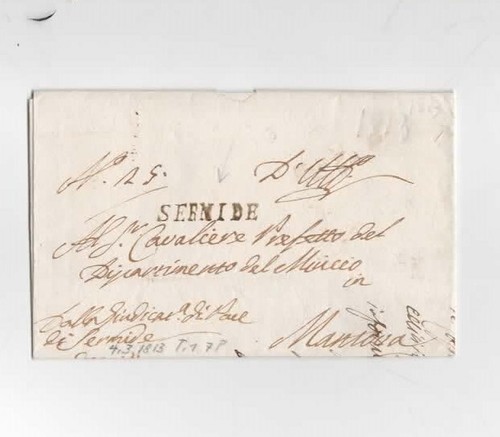 N.° 25. D'Uff.°
SERMIDE
Al Sig.r Cavaliere Prefetto del
Dipartimento del Mincio
in
Dalla Giudicat.a di Pace
di Sermide Mantova
4.3.1813 T.1.7P